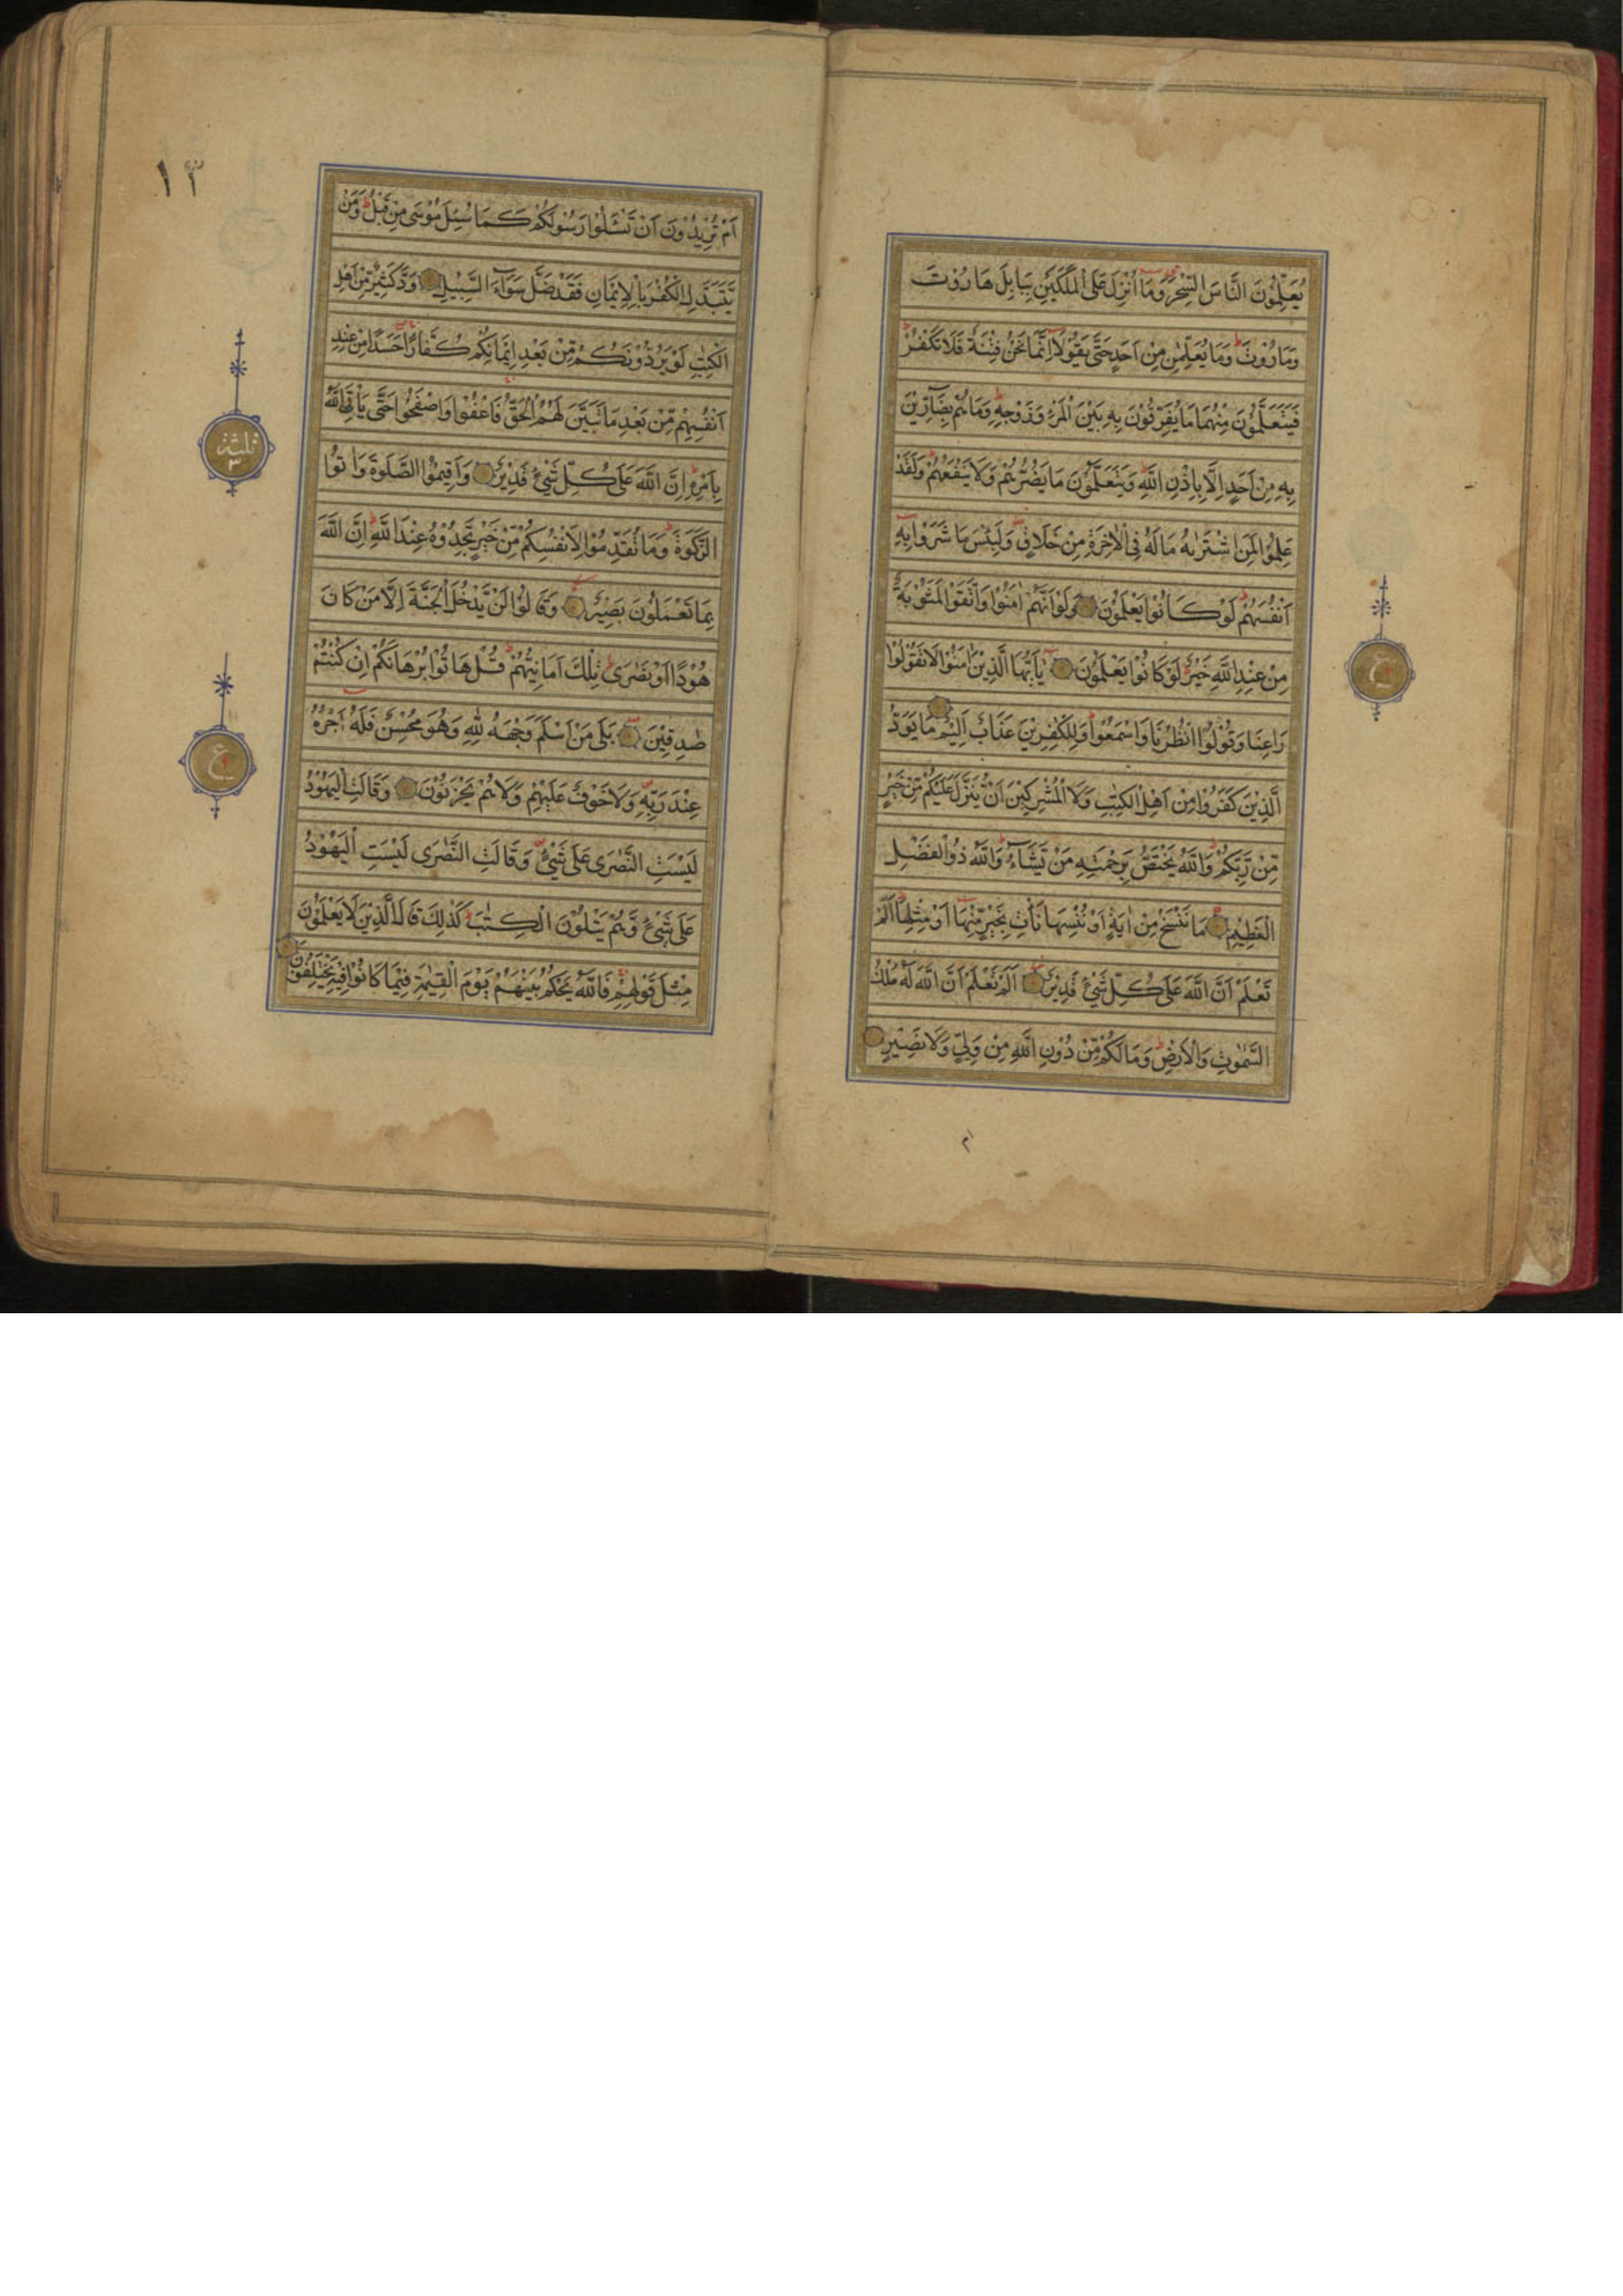 يُعَلِّمُوْنَ النَّاسَ السِّحْرَ وَمَا اُنْزِلَ عَلَى الْمَلَكَيْنِ بِبَابِلَ هَارُوْتَ
وَمَارُوْتَ وَمَا يُعَلِّمٰنِ مِنْ اَحَدٍ حَتّٰى يَقُوْلَا اِنَّمَا نَحْنُ فِتْنَةٌ فَلَا تَكْفُرْ
فَيَتَعَلَّمُوْنَ مِنْهُمَا مَا يُفَرِّقُوْنَ بِهٖ بَيْنَ الْمَرْءِ وَزَوْجِهٖ وَمَا هُمْ بِضَارِّيْنَ
بِهٖ مِنْ اَحَدٍ اِلَّا بِاِذْنِ اللّٰهِ وَيَتَعَلَّمُوْنَ مَا يَضُرُّهُمْ وَلَا يَنْفَعُهُمْ وَلَقَدْ
عَلِمُوْا لَمَنِ اشْتَرٰىهُ مَا لَهٗ فِى الْاٰخِرَةِ مِنْ خَلَاقٍ وَلَبِئْسَ مَا شَرَوْا بِهٖ
اَنْفُسَهُمْ لَوْ كَانُوْا يَعْلَمُوْنَ وَلَوْ اَنَّهُمْ اٰمَنُوْا وَاتَّقَوْا لَمَثُوْبَةٌ
مِنْ عِنْدِ اللّٰهِ خَيْرٌ لَوْ كَانُوْا يَعْلَمُوْنَ يٰاَيُّهَا الَّذِيْنَ اٰمَنُوْا لَا تَقُوْلُوْا
رَاعِنَا وَقُوْلُوا انْظُرْنَا وَاسْمَعُوْا وَلِلْكٰفِرِيْنَ عَذَابٌ اَلِيْمٌ مَا يَوَدُّ
الَّذِيْنَ كَفَرُوْا مِنْ اَهْلِ الْكِتٰبِ وَلَا الْمُشْرِكِيْنَ اَنْ يُنَزَّلَ عَلَيْكُمْ مِنْ خَيْرٍ
مِنْ رَبِّكُمْ وَاللّٰهُ يَخْتَصُّ بِرَحْمَتِهٖ مَنْ يَشَاءُ وَاللّٰهُ ذُو الْفَضْلِ
الْعَظِيْمِ مَا نَنْسَخْ مِنْ اٰيَةٍ اَوْ نُنْسِهَا نَأْتِ بِخَيْرٍ مِنْهَا اَوْ مِثْلِهَا اَلَمْ
تَعْلَمْ اَنَّ اللّٰهَ عَلٰى كُلِّ شَىْءٍ قَدِيْرٌ اَلَمْ تَعْلَمْ اَنَّ اللّٰهَ لَهٗ مُلْكُ
السَّمٰوٰتِ وَالْاَرْضِ وَمَا لَكُمْ مِنْ دُوْنِ اللّٰهِ مِنْ وَلِىٍّ وَلَا نَصِيْرٍ
ع
١٣
اَمْ تُرِيْدُوْنَ اَنْ تَسْـَٔلُوْا رَسُوْلَكُمْ كَمَا سُئِلَ مُوْسٰى مِنْ قَبْلُ وَمَنْ
يَتَبَدَّلِ الْكُفْرَ بِالْاِيْمَانِ فَقَدْ ضَلَّ سَوَاءَ السَّبِيْلِ وَدَّ كَثِيْرٌ مِنْ اَهْلِ
الْكِتٰبِ لَوْ يَرُدُّوْنَكُمْ مِنْ بَعْدِ اِيْمَانِكُمْ كُفَّارًا حَسَدًا مِنْ عِنْدِ
اَنْفُسِهِمْ مِنْ بَعْدِ مَا تَبَيَّنَ لَهُمُ الْحَقُّ فَاعْفُوْا وَاصْفَحُوْا حَتّٰى يَأْتِىَ اللّٰهُ
بِاَمْرِهٖ اِنَّ اللّٰهَ عَلٰى كُلِّ شَىْءٍ قَدِيْرٌ وَاَقِيْمُوا الصَّلٰوةَ وَاٰتُوا
الزَّكٰوةَ وَمَا تُقَدِّمُوْا لِاَنْفُسِكُمْ مِنْ خَيْرٍ تَجِدُوْهُ عِنْدَ اللّٰهِ اِنَّ اللّٰهَ
بِمَا تَعْمَلُوْنَ بَصِيْرٌ وَقَالُوْا لَنْ يَدْخُلَ الْجَنَّةَ اِلَّا مَنْ كَانَ
هُوْدًا اَوْ نَصٰرٰى تِلْكَ اَمَانِيُّهُمْ قُلْ هَاتُوْا بُرْهَانَكُمْ اِنْ كُنْتُمْ
صٰدِقِيْنَ بَلٰى مَنْ اَسْلَمَ وَجْهَهٗ لِلّٰهِ وَهُوَ مُحْسِنٌ فَلَهٗ اَجْرُهٗ
عِنْدَ رَبِّهٖ وَلَا خَوْفٌ عَلَيْهِمْ وَلَا هُمْ يَحْزَنُوْنَ وَقَالَتِ الْيَهُوْدُ
لَيْسَتِ النَّصٰرٰى عَلٰى شَىْءٍ وَقَالَتِ النَّصٰرٰى لَيْسَتِ الْيَهُوْدُ
عَلٰى شَىْءٍ وَهُمْ يَتْلُوْنَ الْكِتٰبَ كَذٰلِكَ قَالَ الَّذِيْنَ لَا يَعْلَمُوْنَ
مِثْلَ قَوْلِهِمْ فَاللّٰهُ يَحْكُمُ بَيْنَهُمْ يَوْمَ الْقِيٰمَةِ فِيْمَا كَانُوْا فِيْهِ يَخْتَلِفُوْنَ
ثلثة
٣
ع